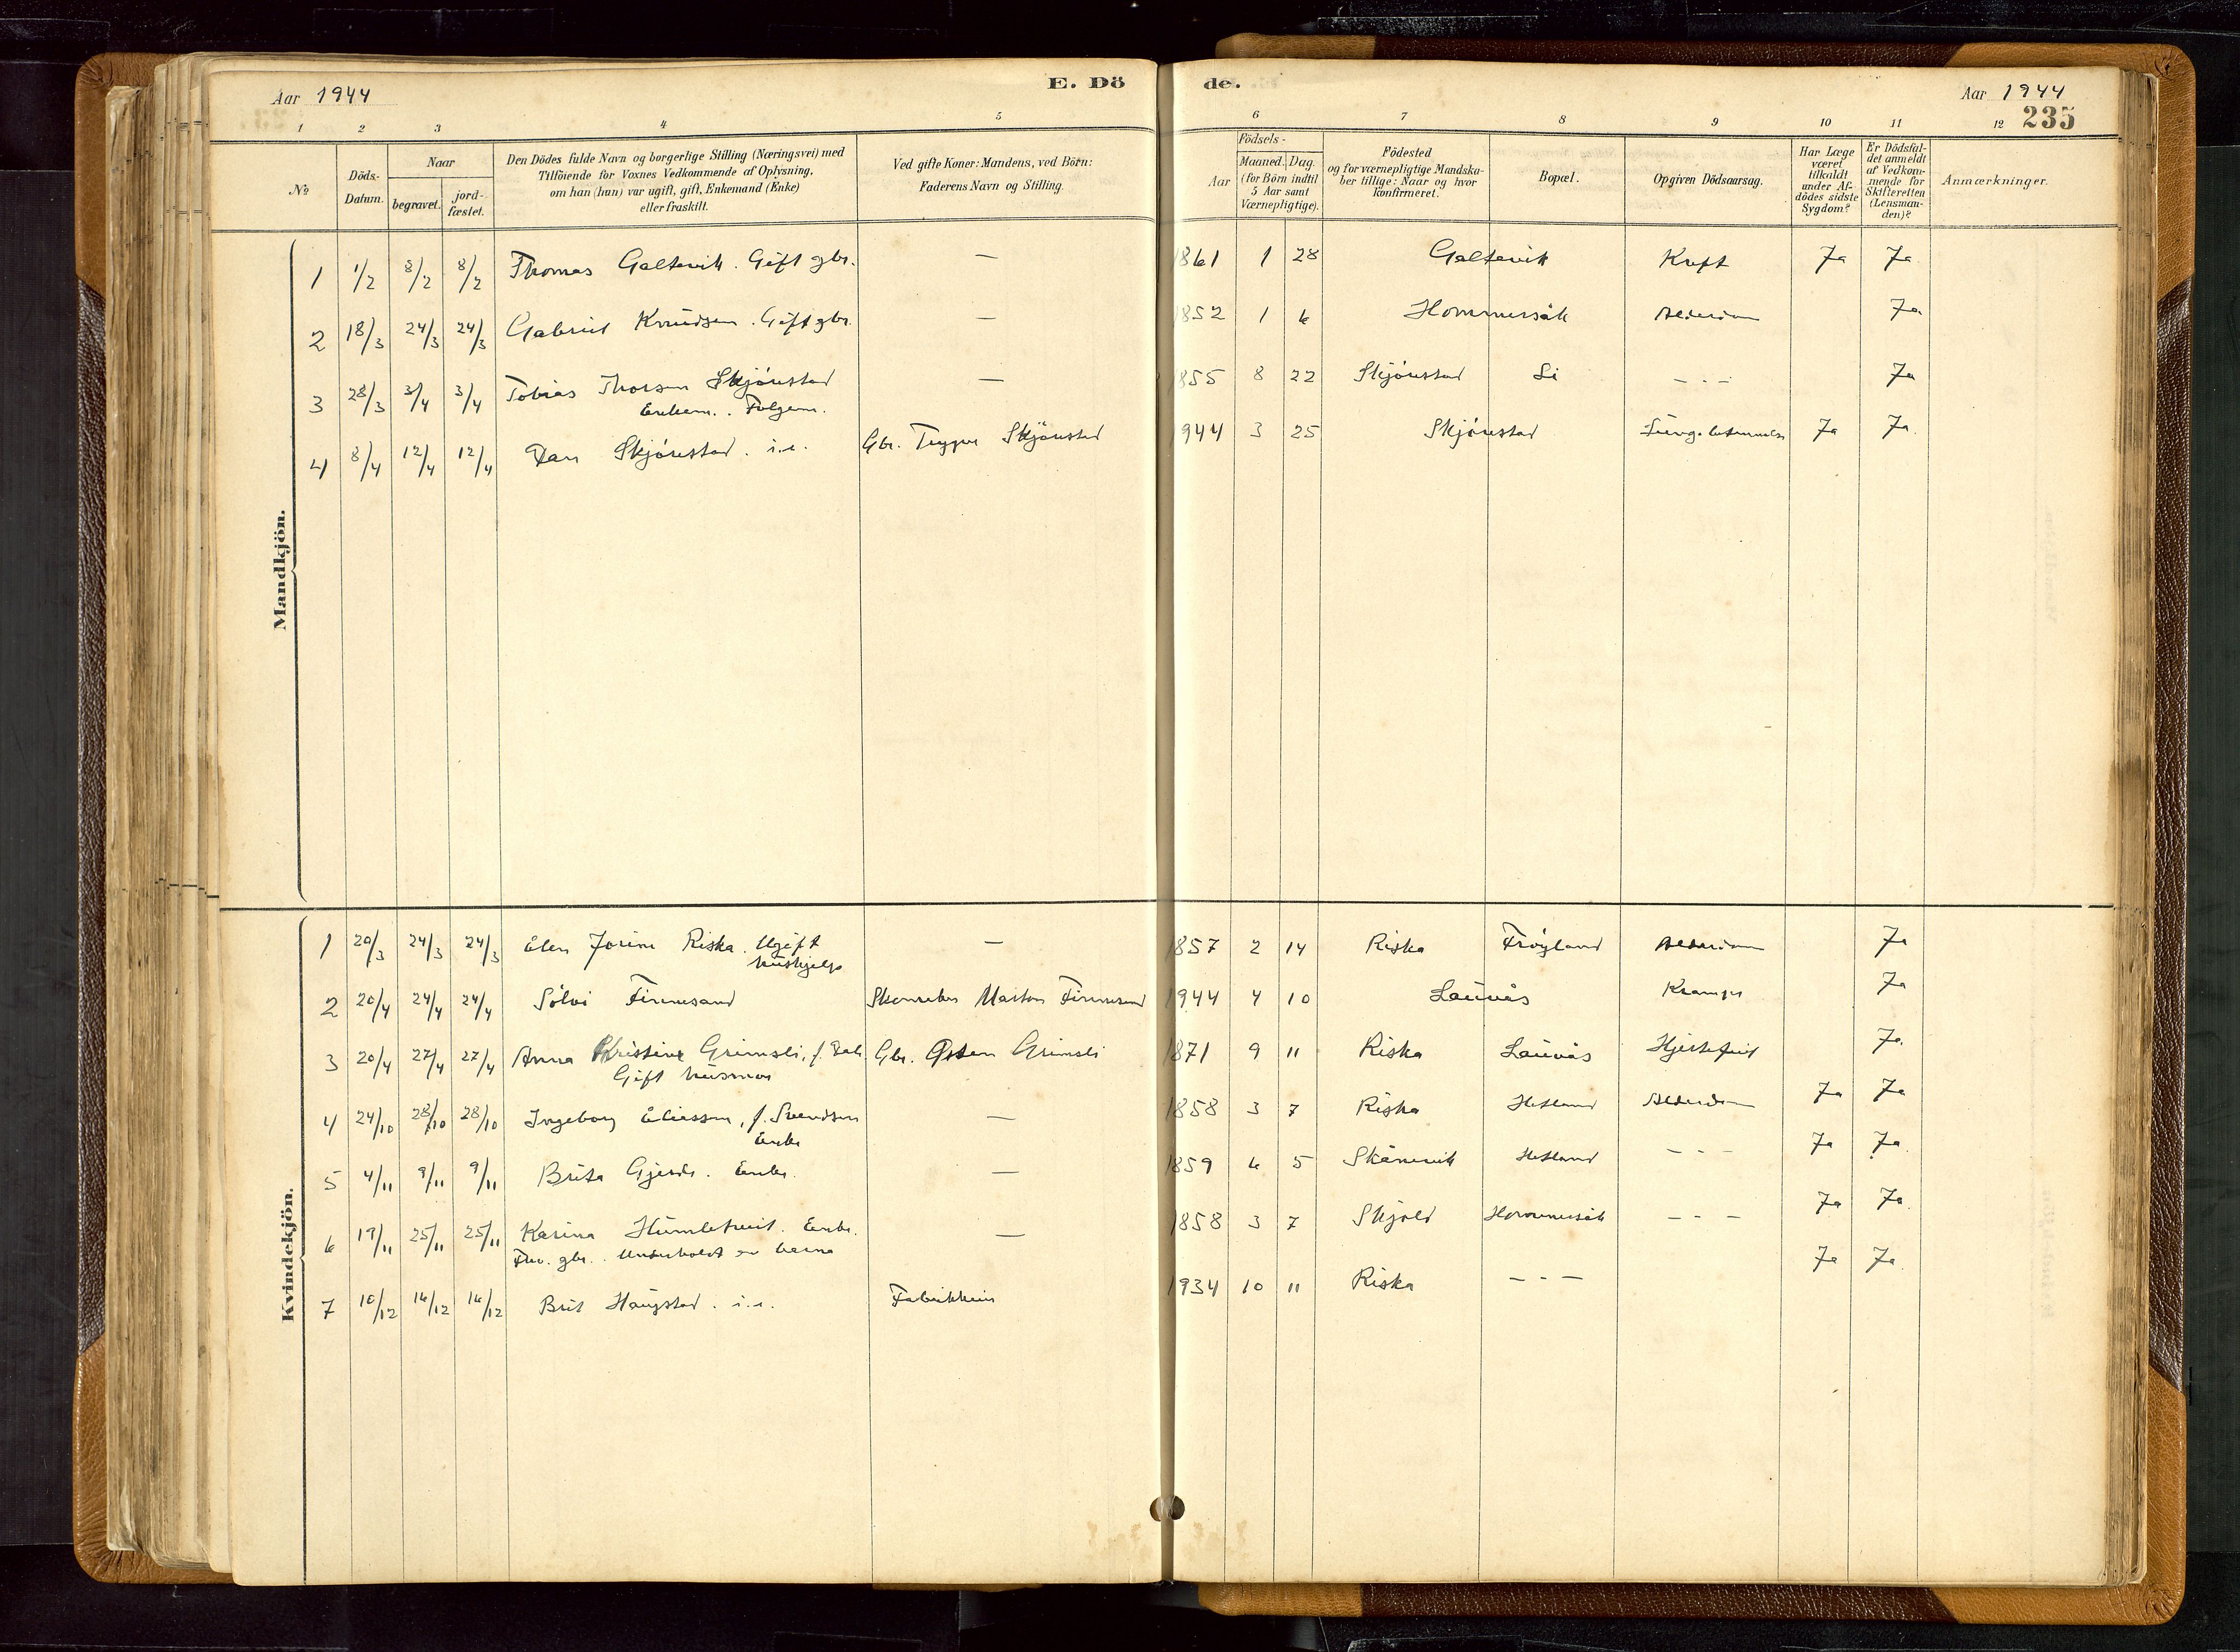 Aar 1944
E. Dö
de.
Aar 1944
235
1 2 3 4 5 6 7 8 9 10 11 12
No
Döds-Datum.
Naar
begravet.
jord-fæstet.
Den Dödes fulde Navn og borgerlige Stilling (Næringsvei) med
Tilföiende for Voxnes Vedkommende af Oplysning,
om han (hun) var ugift, gift, Enkemand (Enke)
eller fraskilt.
Ved gifte Koner: Mandens, ved Börn:
Faderens Navn og Stilling.
Födsels-
Aar
Maaned. Dag.
(for Börn indtil
5 Aar samt
Værnepligtige).
Födested
og for værnepligtige Mandska-
ber tillige: Naar og hvor
konfirmeret.
Bopæl.
Opgiven Dödsaarsag.
Har Læge
været
tilkaldt
under Af-
dödes sidste
Sygdom?
Er Dödsfal-
det anmeldt
af Vedkom-
mende for
Skifteretten
(Lensman-
den)?
Anmærkninger.
Mandkjön.
1 1/2 8/2 8/2 Thomas Galtevik. Gift gbr. — 1861 1 28 Galtevik Kreft Ja Ja
2 18/3 24/3 24/3 Gabriel Knudsen. Gift gbr. — 1852 1 6 Hommersåk Alderdom Ja
3 28/3 3/4 3/4 Tobias Thorsen Skjörestad — 1855 8 22 Skjörestad Li — - — Ja
Enkem. Folgem.
4 8/4 12/4 12/4 Skjörestad. i.e. Gbr. Trygve Skjörestad 1944 3 25 Skjörestad Ja Ja.
Kvindekjön.
1 20/3 24/3 24/3 Elen Jorine Riska. Ugift — 1857 2 14 Riska Fröyland Alderdom Ja
hushjelp
2 20/4 24/4 24/4 Sölvi Finnesand Marton Finnesand 1944 4 10 Lauvås Kramper Ja
3 20/4 27/4 27/4 Anna Kristine Grimsli, f. Gbr. Grimsli 1871 9 11 Riska Lauvås Hjertefeil Ja.
Gift husmor
4 24/10 28/10 28/10 Ingeborg Eliassen, f. Svendsen — 1858 3 7 Riska Hetland Alderdom Ja Ja
Enke
5 4/11 9/11 9/11 Brita Gjerde. Enke. — 1859 6 5 Skånevik Hetland - - - Ja Ja.
6 19/11 25/11 25/11 Karina Humletveit. Enke. — 1858 3 7 Skjold Hommersåk - - - Ja Ja.
gbr. Underholdt av barna
7 10/12 16/12 16/12 Brit Haugstad. i.e. 1934 10 11 Riska - - - Ja Ja.